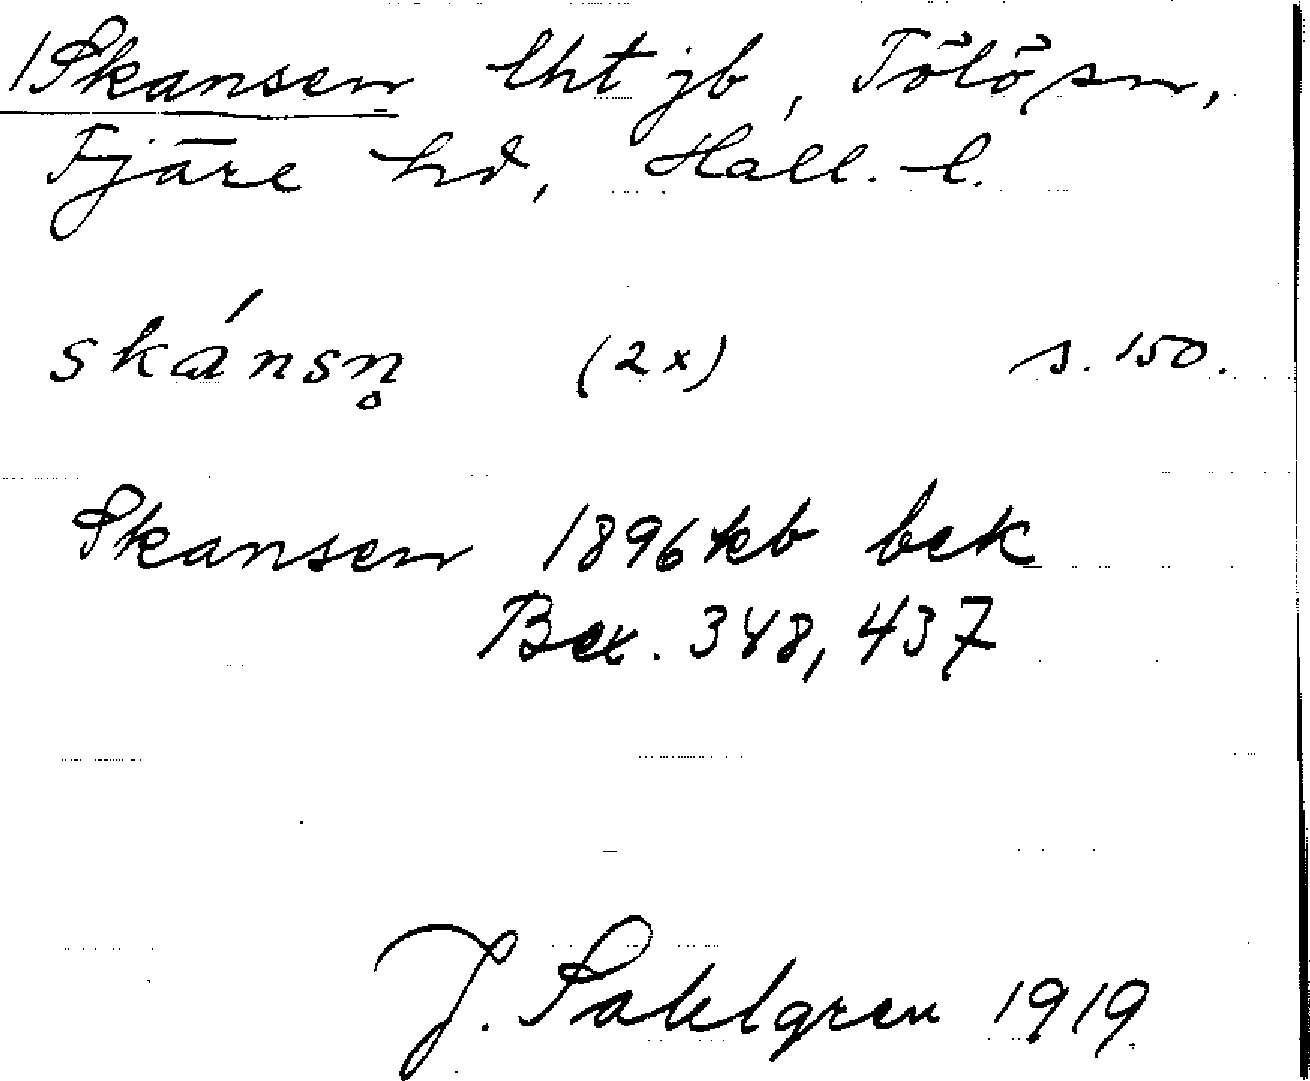 Skansen lht jb, Tölö sn,
Fjäre hd, Hall. l.
skánsn̥ (2x) s. 150.
Skansen 1896 kb bek
Bex. 348, 437
J. Sahlgren 1919